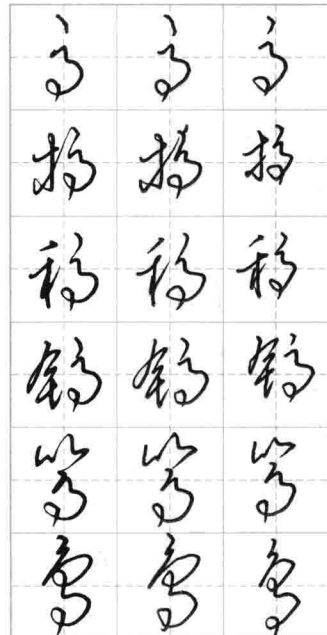 高 高 高
搞 搞 搞
稿 稿 稿
镐 镐 镐
篙 篙 篙